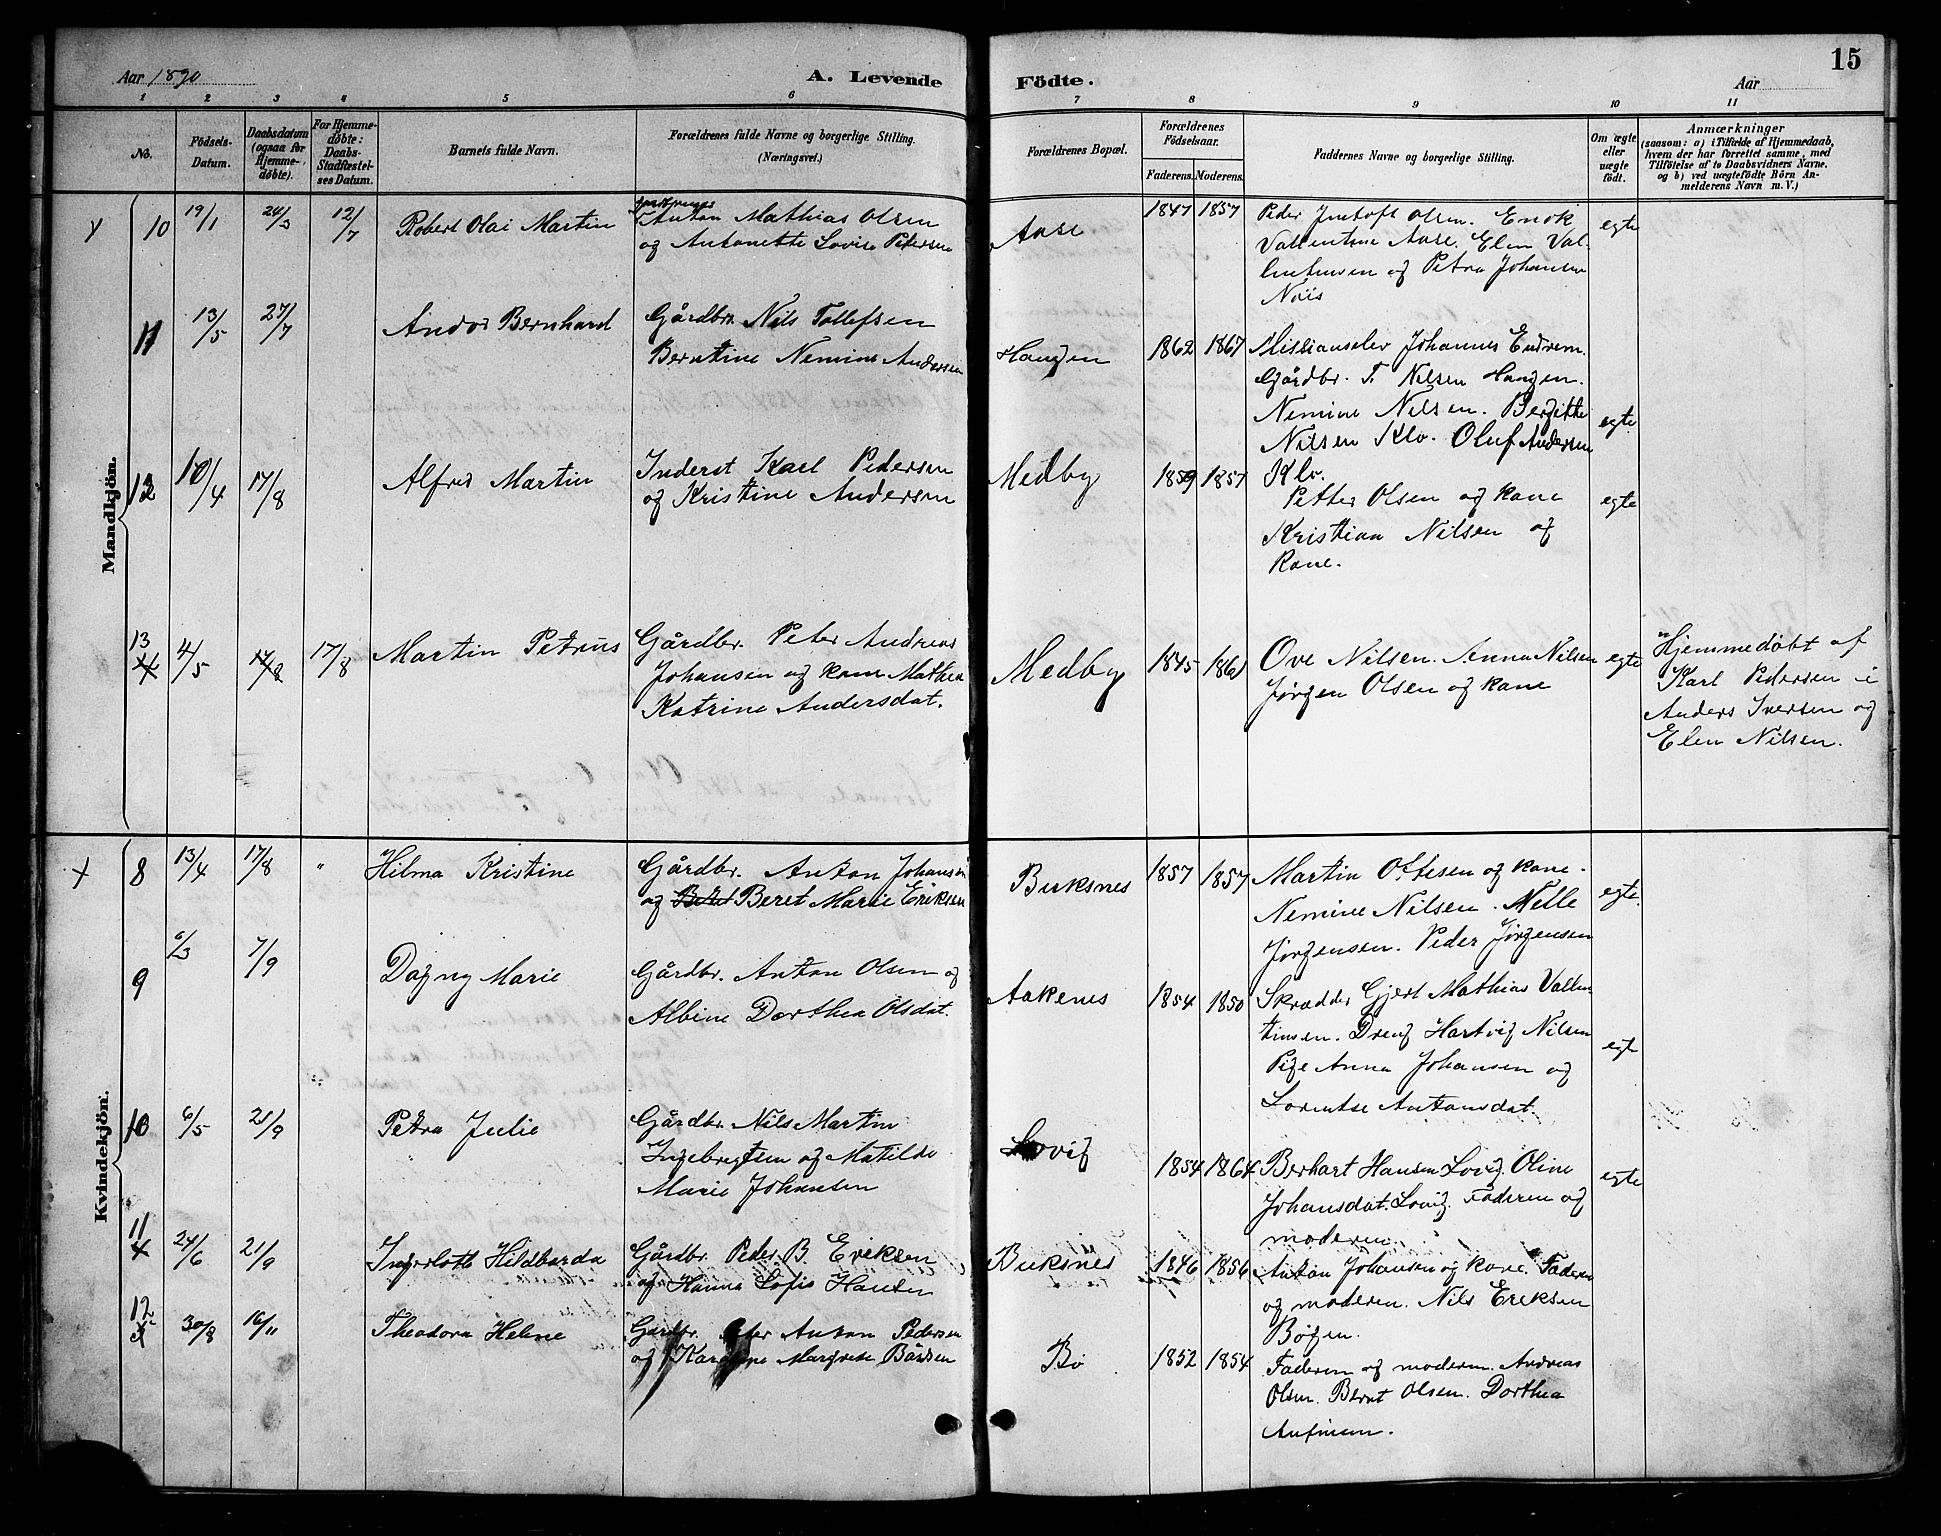 Aar 1890
A. Levende
Födte.
Aar
15
1 2 3 4 5 6 7 8 9 10 11
No.
Födsels-
Datum.
Daabsdatum
(ogsaa for
Hjemme-
döbte).
For Hjemme-
döbte:
Daabs-
Stadfæstel-
ses Datum.
Barnets fulde Navn.
Forældrenes fulde Navne og borgerlige Stilling.
(Næringsvei.)
Forældrenes Bopæl.
Forældrenes
Födselsaar.
Faderens. Moderens.
Faddernes Navne og borgerlige Stilling.
Om ægte
eller
uægte
födt.
Anmærkninger
(saasom: a) i Tilfælde af Hjemmedaab,
hvem der har forrettet samme, med
Tilföielse af to Daabsvidners Navne.
og b) ved uægtefödte Börn An-
melderens Navn m. V.)
Mandkjön.
10 19/1 24/3 12/7 Robert Olai Martin
Anton Mathias Olsen
og Antonette Lovise Pedersen
Aase
1847 1857
Peder Olsen. Enok
Vallentine Aase. Elen Val-
og Petra Johansen
Nöis
egte
11 13/5 27/7 Andor Bernhard
Gårdbr. Nils Tollefsen
Berntine Nemine Andersen
Haugen
1862 1867
Missionselev Johannes Endrem.
Gårdbr. T. Nilsen Haugen.
Nemine Nilsen. Bergitte
Nilsen Klo. Oluf Andersen
Klo.
egte
12 10/4 17/8 Alfred Martin
Inderst Karl Pedersen
og Kristine Andersen
Medby
1859 1857
Petter Olsen og kone
Kristian Nilsen og
kone.
egte
13 4/5 17/8 17/8 Martin Petrus
Gårdbr. Peter Andreas
Johansen og kone Mathea
Katrine Andersdat.
Medby
1845 1861
Ove Nilsen. Anna Nilsen
Jörgen Olsen og kone
egte
Hjemmedöbt af
Karl Pedersen i
Anders Iversen og
Elen Nilsen.
Kvindekjön.
8 13/4 17/8 " Hilma Kristine
Gårdbr. Anton Johansen
og Beret Marie Eriksen
Buksnes
1857 1857
Martin Ottesen og kone.
Nemine Nilsen. Nelle
Jörgensen. Peder Jörgensen
egte.
9 6/3 7/9 Dagny Marie
Gårdbr. Anton Olsen og
Albine Dorthea Olsdat.
Aakenes
1854 1850
Skrædder Gjert Mathias Vallen-
tinsen. Dreng Hartvig Nilsen
Pige Anna Johansen og
Lorentse Antonsdat.
egte
10 6/5 21/9 Petra Julie
Gårdbr. Nils Martin
Ingebregtsen og Matilde
Marie Johansen
Lovig
1854 1864
Berhart Hansen Lovig. Oline
Johansdat. Lovig. Faderen og
moderen.
egte
11 24/6 21/9 Ingerlotte Hildborda
Gårdbr. Peder B. Eriksen
og Hanna Sofie Hansen
Buksnes
1846 1856
Anton Johansen og kone. Faderen
og moderen. Nils Eriksen
Bögen.
12 30/8 16/11 Theodora Helene
Gårdbr. Peter Anton Pedersen
og Karoline Margrete Bårdsen
Bö
1852 1854
Faderen og moderen. Andreas
Olsen. Bernt Olsen. Dorthea